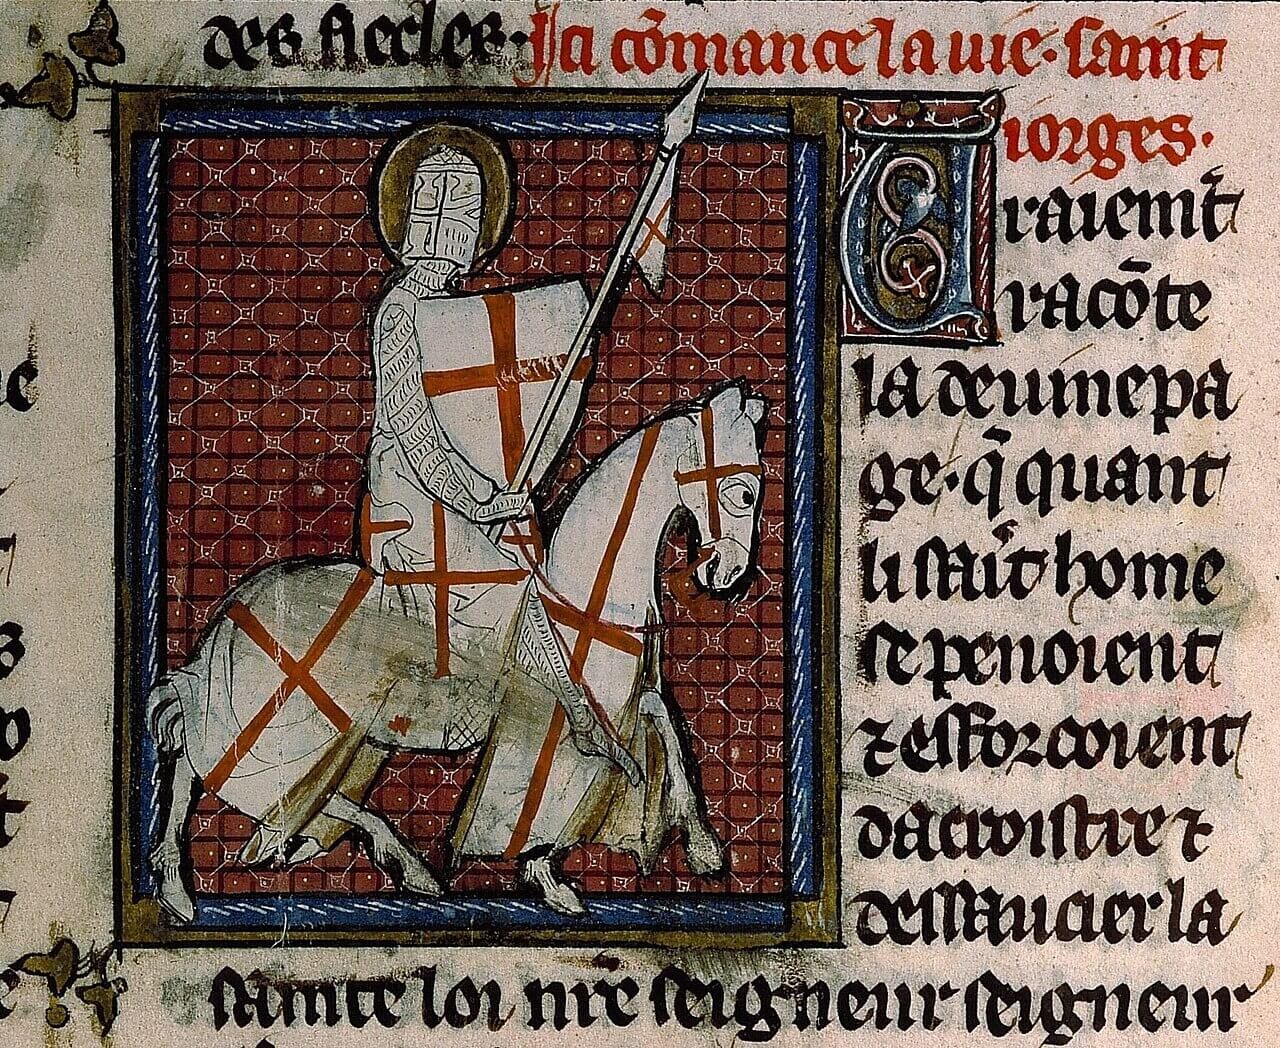 des siecles. Ici cōmance la uie. saint
iorges.
Vraiemt̄
racōte
la deuinepa
ge. q̄ quant
li sait̄ home
se penoient
⁊ esforcoient
dacroistre ⁊
dessaucier la
sainte loi nr̄e seigneur seigneur